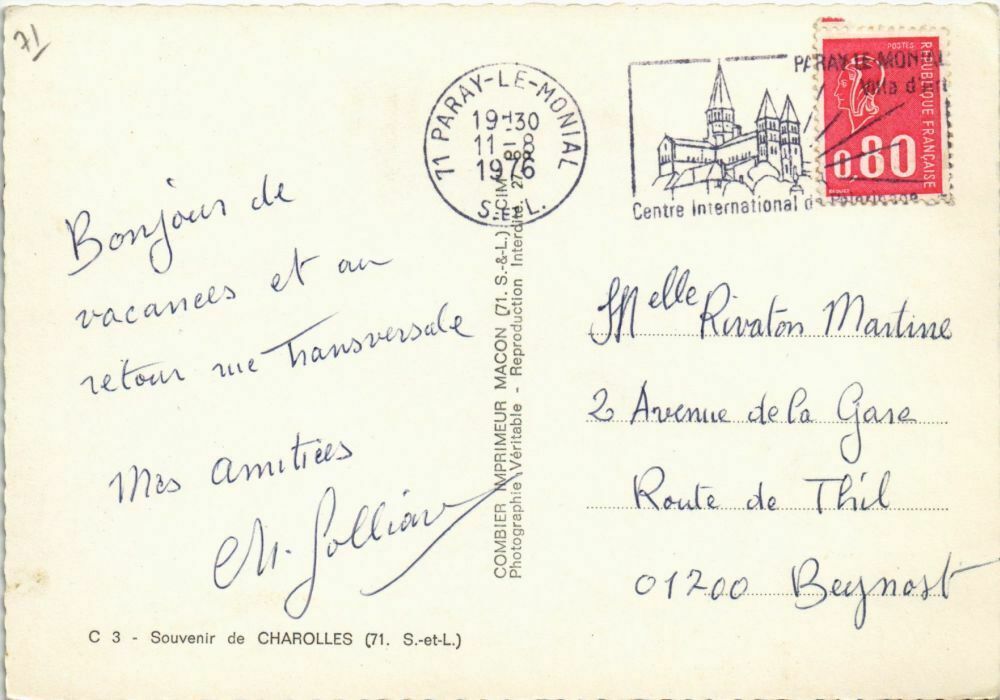 71
Bonjour de
vacances et au
retour rue Transversale
Mes amitiées
C 3 - Souvenir de CHAROLLES (71. S.-et-L.)
COMBIER IMPRIMEUR MACON (71. S.-&-L.) CIM
Photographie Véritable - Reproduction Interdite.
71 PARAY-LE-MONIAL
19-30
11-8
1976
S.-ET-L.
PARAY-LE-MONIAL
Ville d'art
Centre International de
POSTES
REPUBLIQUE FRANÇAISE
0,80
Melle Rivaton Martine
2 Avenue de la Gare
Route de Thil
01700 Beynost